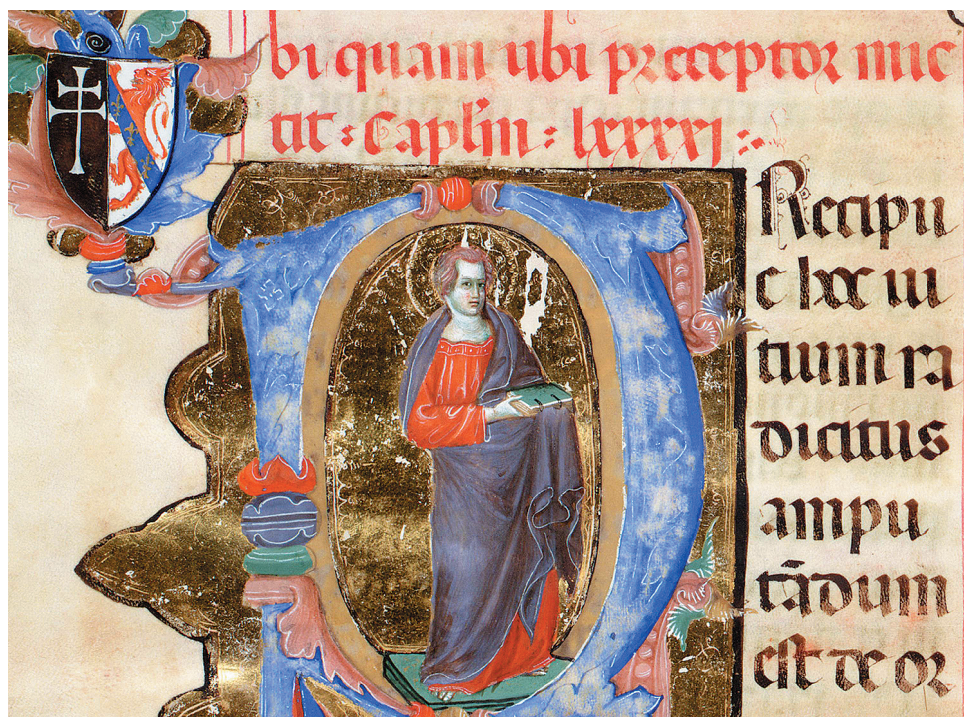 bi quam ubi preceptor mic
tit : Caplm̄ : lxxxxi :
PRecipu
e hoc ui
tium ra
dicitus
ampu
tādum
est de or